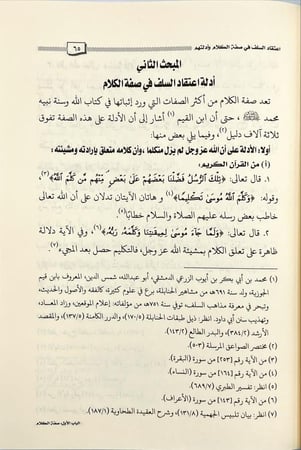 اعتقاد السلف في صفة الكلام وأدلتهم
٦٥
المبحث الثاني
أدلة اعتقاد السلف في صفة الكلام
تعد صفة الكلام من أكثر الصفات التي ورد إثباتها في كتاب الله وسنة نبيه
محمد ﷺ، حتى أن ابن القيم (١) أشار إلى أن الأدلة على هذه الصفة تفوق
ثلاثة آلاف دليل(٢)، وفيما يلي بعض منها:
أولا: الأدلة على أن الله عز وجل لم يزل متكلما، وأن كلامه متعلق بإرادته ومشيئته:
(أ) من القرآن الكريم:
١. قال تعالى: ﴿تِلْكَ الرُّسُلُ فَضَّلْنَا بَعْضَهُمْ عَلَى بَعْضٍ مِنْهُم مَّن كَلَّمَ اللَّهُ﴾(٣)،
وقوله: ﴿وَكَلَّمَ اللَّهُ مُوسَى تَكْلِيمًا﴾(٤) و هاتان الآيتان تدلان على أن الله تعالى
خاطب بعض رسله عليهم الصلاة والسلام خطابًا(٥).
٢. قال تعالى: ﴿وَلَمَّا جَاءَ مُوسَى لِمِيقَاتِنَا وَكَلَّمَهُ رَبُّهُ﴾(٦)، وفي الآية دلالة
ظاهرة على تعلق الكلام بمشيئة الله عز وجل، فالتكليم حصل بعد المجيء(٧).
(١) محمد بن أبي بكر بن أيوب الزرعي الدمشقي، أبو عبدالله، شمس الدين، المعروف بابن قيم
الجوزية، ولد سنة ٦٩١هـ من مشاهير الحنابلة، برع في علوم كثيرة، كالفقه والأصول، والحديث،
وتبحر في معرفة مذاهب السلف، توفي سنة ٧٥١هـ من مؤلفاته: إعلام الموقعين، وزاد المعاد،
وتهذيب سنن أبي داود. انظر: ذيل طبقات الحنابلة (١٧٠/٥) والدرر الكامنة (١٣٧/٥) والمقصد
الأرشد (٣٨٤/٢)، والبدر الطالع (١٤٣/٢).
(٢) مختصر الصواعق المرسلة (٥٠٣).
(٣) من الآية رقم [٢٥٣] من سورة (البقرة).
(٤) من الآية رقم [١٦٤] من سورة (النساء).
(٥) انظر: تفسير الطبري (٦٨٩/٧).
(٦) من الآية رقم [١٤٣] من سورة (الأعراف).
(٧) انظر: بيان تلبيس الجهمية (١٣١/٨)، وشرح العقيدة الطحاوية (١٨٧/١).
الباب الأول: صفة الكلام